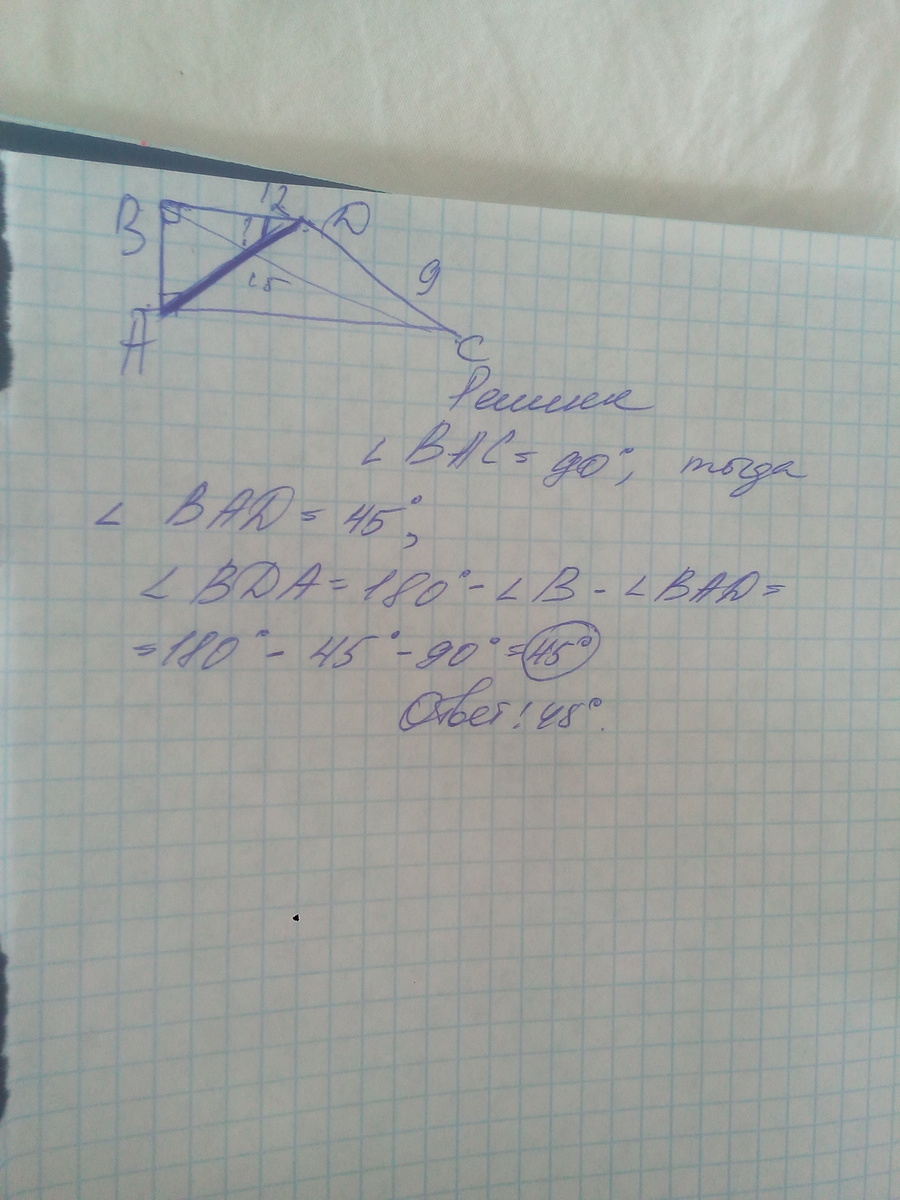 B 12 D
1
15
9
A
C
Решение
∠ BAC = 90°, тогда
∠ BAD = 45°,
∠ BDA = 180° - ∠B - ∠BAD =
= 180° - 45° - 90° = 45°
Ответ: 45°.